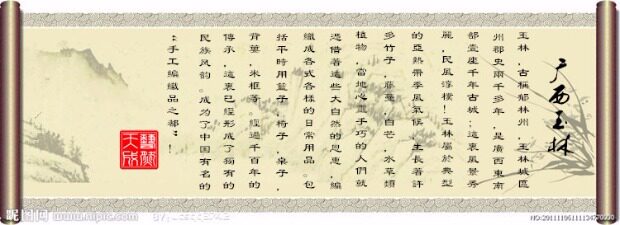 广西玉林
玉林，古稱郁林州，玉林城區
州郡史兩千多年，是廣西東南
部壹座千年古城，這裏風景秀
麗，民風淳樸！玉林屬於典型
的亞熱帶季風氣候，生長著許
多竹子，藤草，白芒，水草類
植物，當地心靈手巧的人們就
憑借著這些大自然的恩惠，編
織成各式各樣的日常用品。包
括平時用籃子，椅子，桌子，
背簍，米框等。經過千百年的
傳承，這裏已經形成了獨有的
民族風韵。成为了中国有名的
“手工編織品之都”！
天成
昵图网 www.nipic.com